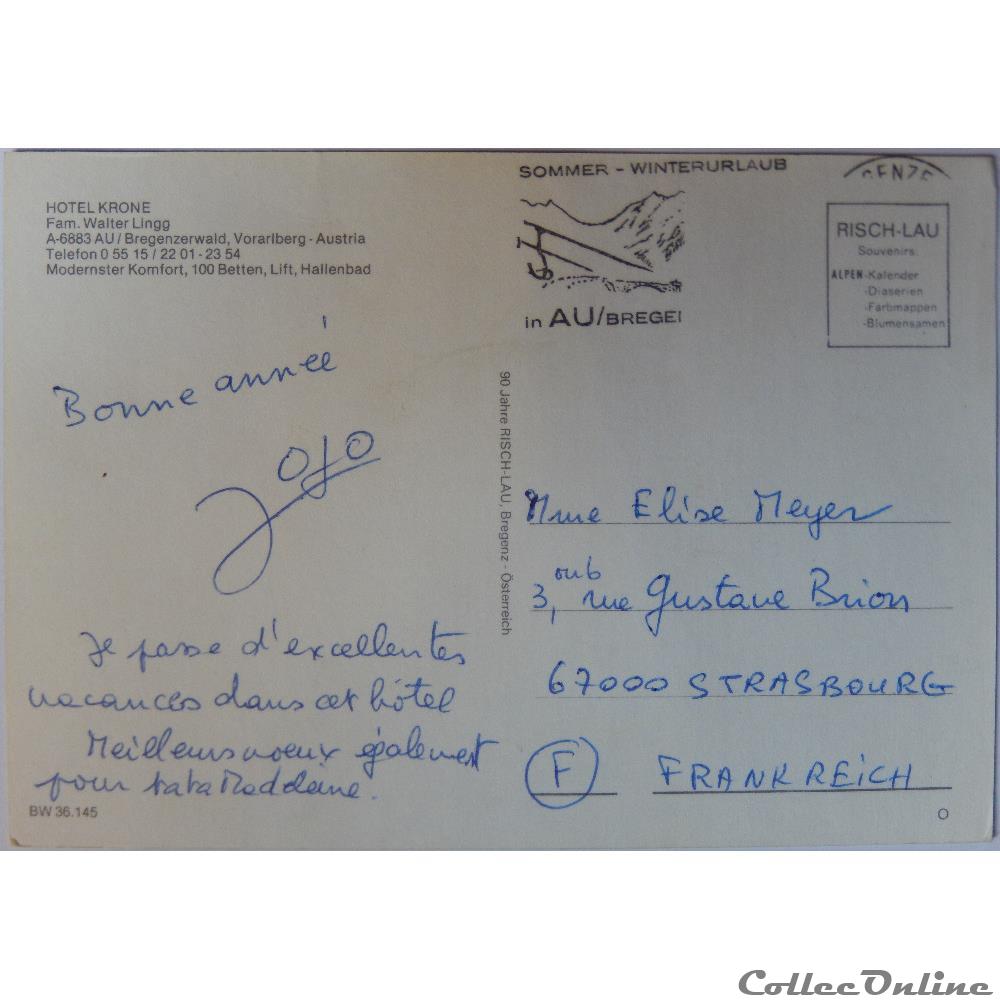 HOTEL KRONE
Fam. Walter Lingg
A-6883 AU / Bregenzerwald, Vorarlberg - Austria
Telefon 0 55 15 / 22 01 - 23 54
Modernster Komfort, 100 Betten, Lift, Hallenbad
SOMMER - WINTERURLAUB
in AU/BREGE
RISCH-LAU
Souvenirs:
ALPEN-Kalender
-Diaserien
-Farbmappen
-Blumensamen
Bonne année
Jojo
Je passe d'excellentes
vacances dans cet hôtel
Meilleurs voeux également
pour tata Madeleine.
BW 36.145
90 Jahre RISCH-LAU, Bregenz - Österreich
Mme Elise Meyer
3, rue Gustave Brion
67000 STRASBOURG
F FRANKREICH
O
CollecOnline